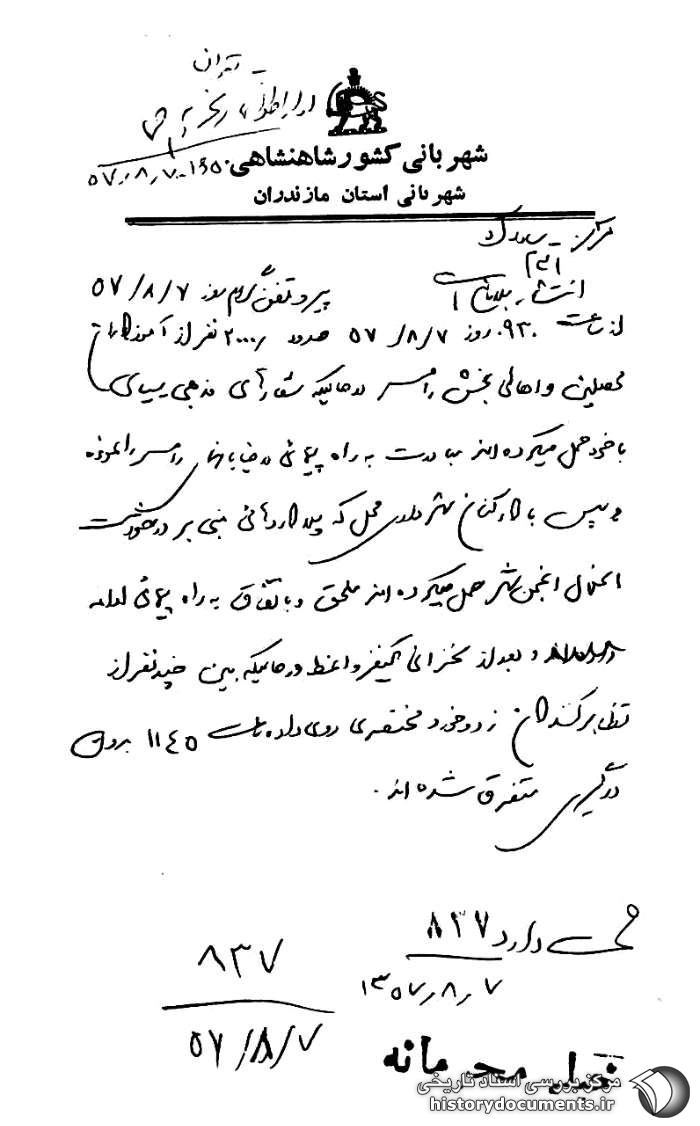 تهران
شهربانی کشور شاهنشاهی
۵۷/۸/۷-۱۶۵۰
شهربانی استان مازندران
مرکز - ساواک
پیرو تلفنگرام روز ۵۷/۸/۷
از ساعت ۰۹۳۰ روز ۵۷/۸/۷ حدود ۲۰۰۰ نفر از آموزگاران
محصلین و اهالی بخش رامسر درحالیکه شعارهای مذهبی سیاسی
با خود حمل میکرده اند مبادرت به راه پیمائی در خیابانهای رامسر را نموده
و سپس با کارکنان شهرداری محل که پلاکاردهائی مبنی بر درخواست
انحلال انجمن شهر حمل میکرده اند ملحق و باتفاق به راه پیمائی ادامه
و بعد از سخنرانی یکنفر واعظ درحالیکه بین چند نفر از
تظاهرکنندگان زد و خورد مختصری روی داده ساعت ۱۱۴۵ بدون
درگیری متفرق شده اند.
دارد ۸۳۷
۱۳۵۷/۸/۷
۸۳۷
۵۷/۸/۷
خیلی محرمانه
مرکز بررسی اسناد تاریخی
historydocuments.ir